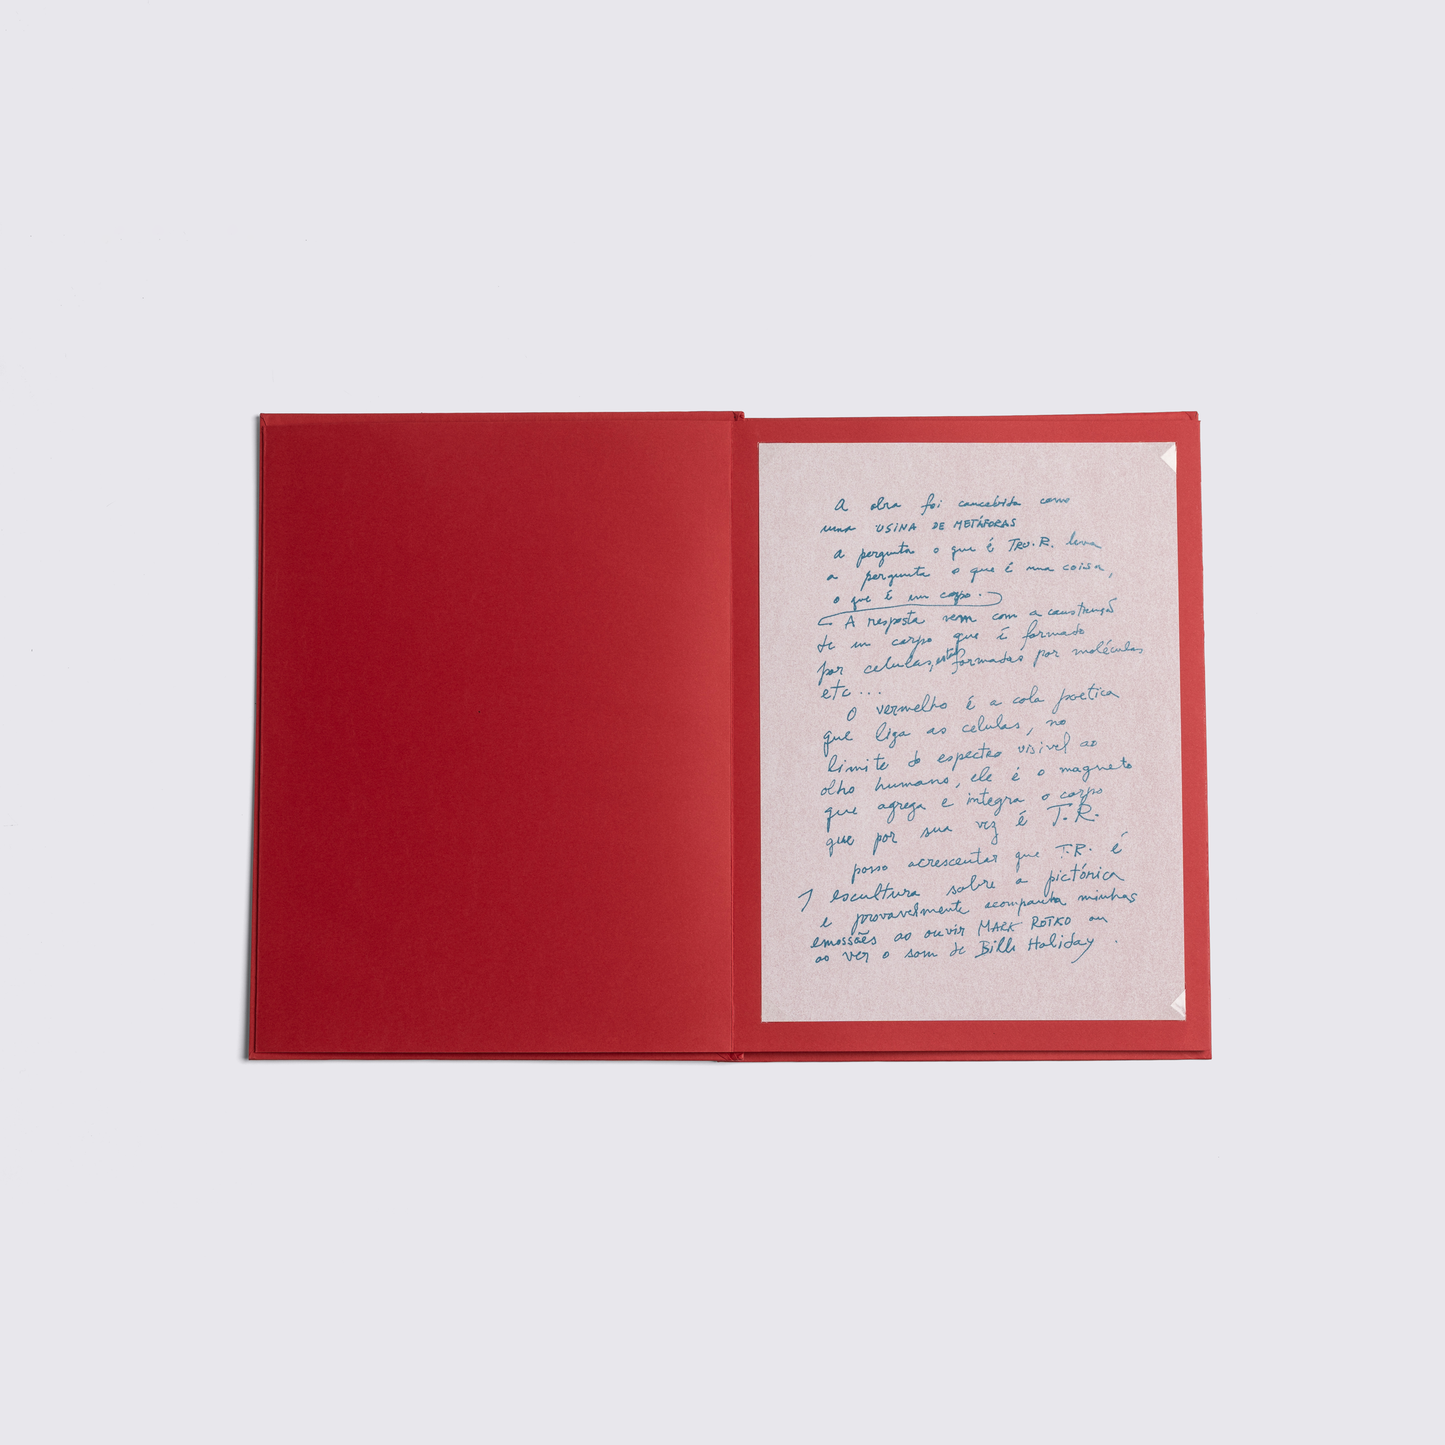 A obra foi concebida como
uma USINA DE METÁFORAS
a pergunta o que é TRU.R. leva
a pergunta o que é uma coisa,
o que é um corpo.
A resposta vem com a construção
de um corpo que é formado
por celulas, estas formadas por moléculas
etc...
O vermelho é a cola poetica
que liga as celulas, no
limite do espectro visivel ao
olho humano, ele é o magneto
que agrega e integra o corpo
que por sua vez é T.R.
posso acrescentar que T.R. é
escultura sobre a pictórica
e provavelmente acompanha minhas
emossões ao ouvir MARK ROTKO ou
ao ver o som de Bille Holiday.